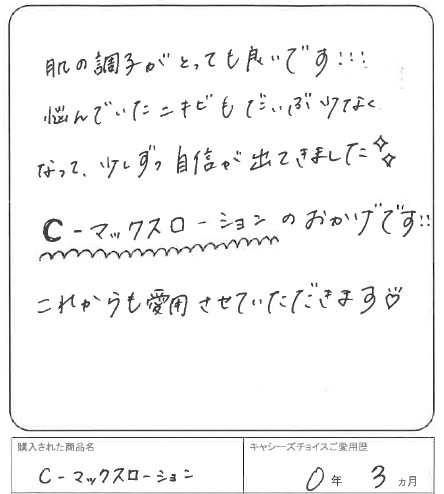 肌の調子がとっても良いです!!!
悩んでいたニキビもだいぶ少なく
なって、少しずつ自信が出てきました✧✧
C-マックスローションのおかげです!!
これからも愛用させていただきます♡
購入された商品名
C-マックスローション
キャシーズチョイスご愛用歴
0年 3ヵ月